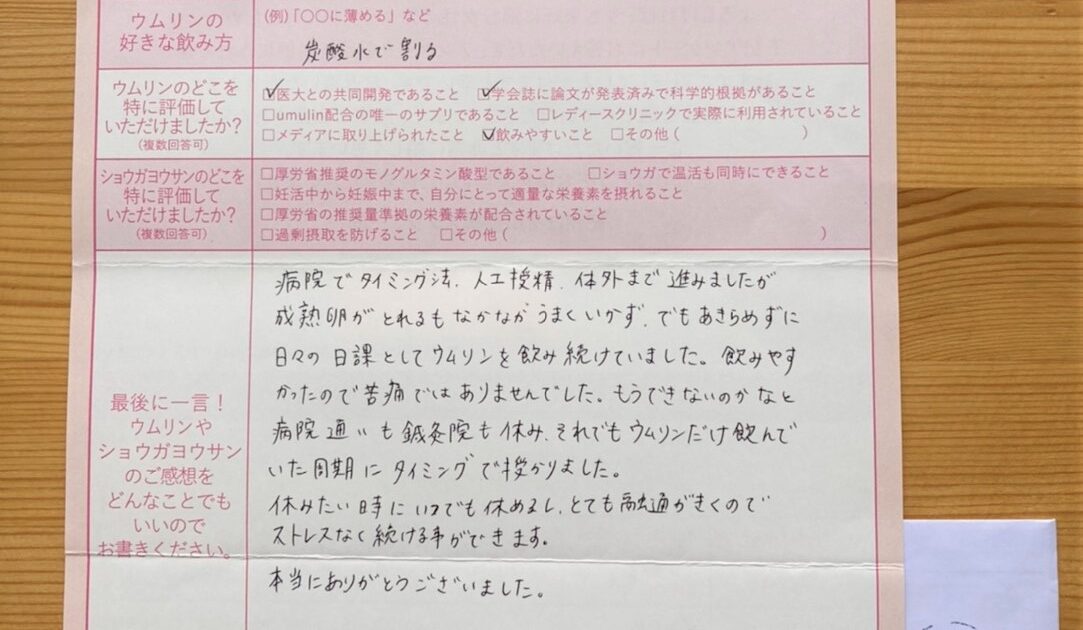 ウムリンの
好きな飲み方
(例)「〇〇に薄める」など
炭酸水で割る
ウムリンのどこを
特に評価して
いただけましたか?
(複数回答可)
☑医大との共同開発であること ☑学会誌に論文が発表済みで科学的根拠があること
□umulin配合の唯一のサプリであること □レディースクリニックで実際に利用されていること
□メディアに取り上げられたこと ☑飲みやすいこと □その他( )
ショウガヨウサンのどこを
特に評価して
いただけましたか?
(複数回答可)
□厚労省推奨のモノグルタミン酸型であること □ショウガで温活も同時にできること
□妊活中から妊娠中まで、自分にとって適量な栄養素を摂れること
□厚労省の推奨量準拠の栄養素が配合されていること
□過剰摂取を防げること □その他( )
最後に一言!
ウムリンや
ショウガヨウサン
のご感想を
どんなことでも
いいので
お書きください。
病院でタイミング法、人工授精、体外まで進みましたが
成熟卵がとれるもなかなかうまくいかず、でもあきらめずに
日々の日課としてウムリンを飲み続けていました。飲みやす
かったので苦痛ではありませんでした。もうできないのかなと
病院通いも鍼灸院も休み、それでもウムリンだけ飲んで
いた周期にタイミングで授かりました。
休みたい時にいつでも休めるし、とても融通がきくので
ストレスなく続ける事ができます。
本当にありがとうございました。